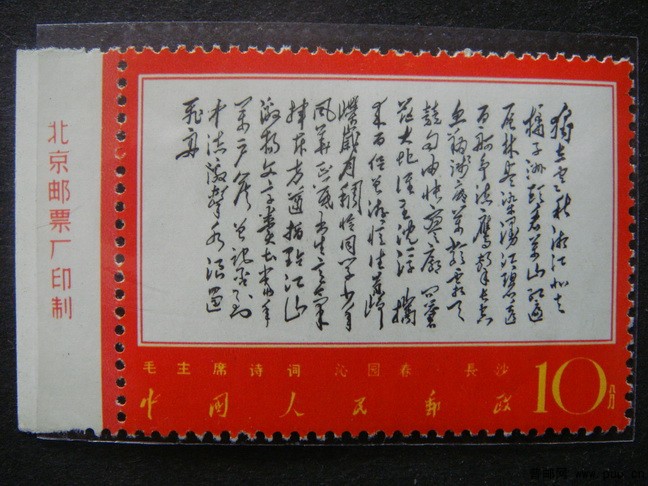 独立寒秋湘江北去
橘子洲头看万山红遍
层林尽染漫江碧透
百舸争流鹰击长空
鱼翔浅底万类霜天
竞自由怅寥廓问苍
茫大地谁主沉浮 携
来百侣曾游忆往昔峥
嵘岁月稠恰同学少年
风华正茂书生意气
挥斥方遒指点江山
激扬文字粪土当年
万户侯曾记否到
中流击水浪遏
飞舟
毛主席诗词 沁园春 长沙
中国人民邮政 10分
北京邮票厂印制